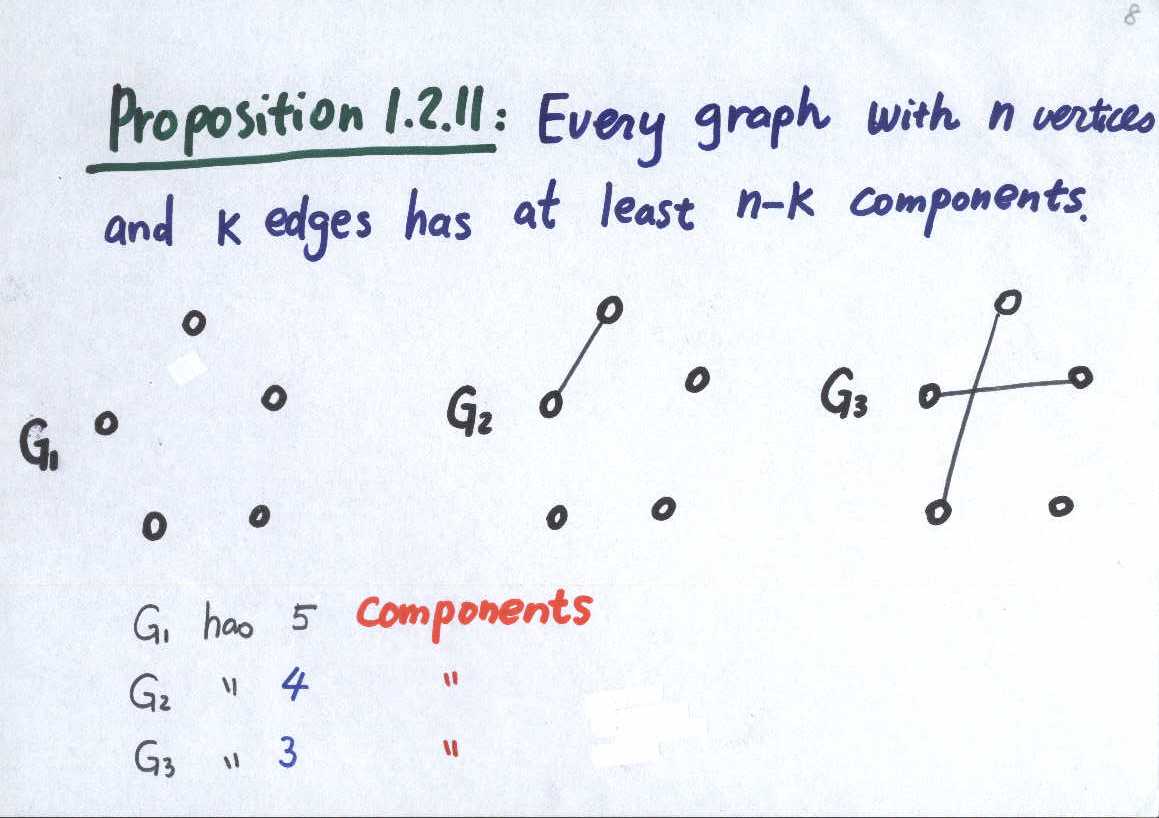 8
Proposition 1.2.11: Every graph with n vertices
and k edges has at least n-k components.
G₁
G₂
G₃
G₁ has 5 components
G₂ " 4 "
G₃ " 3 "